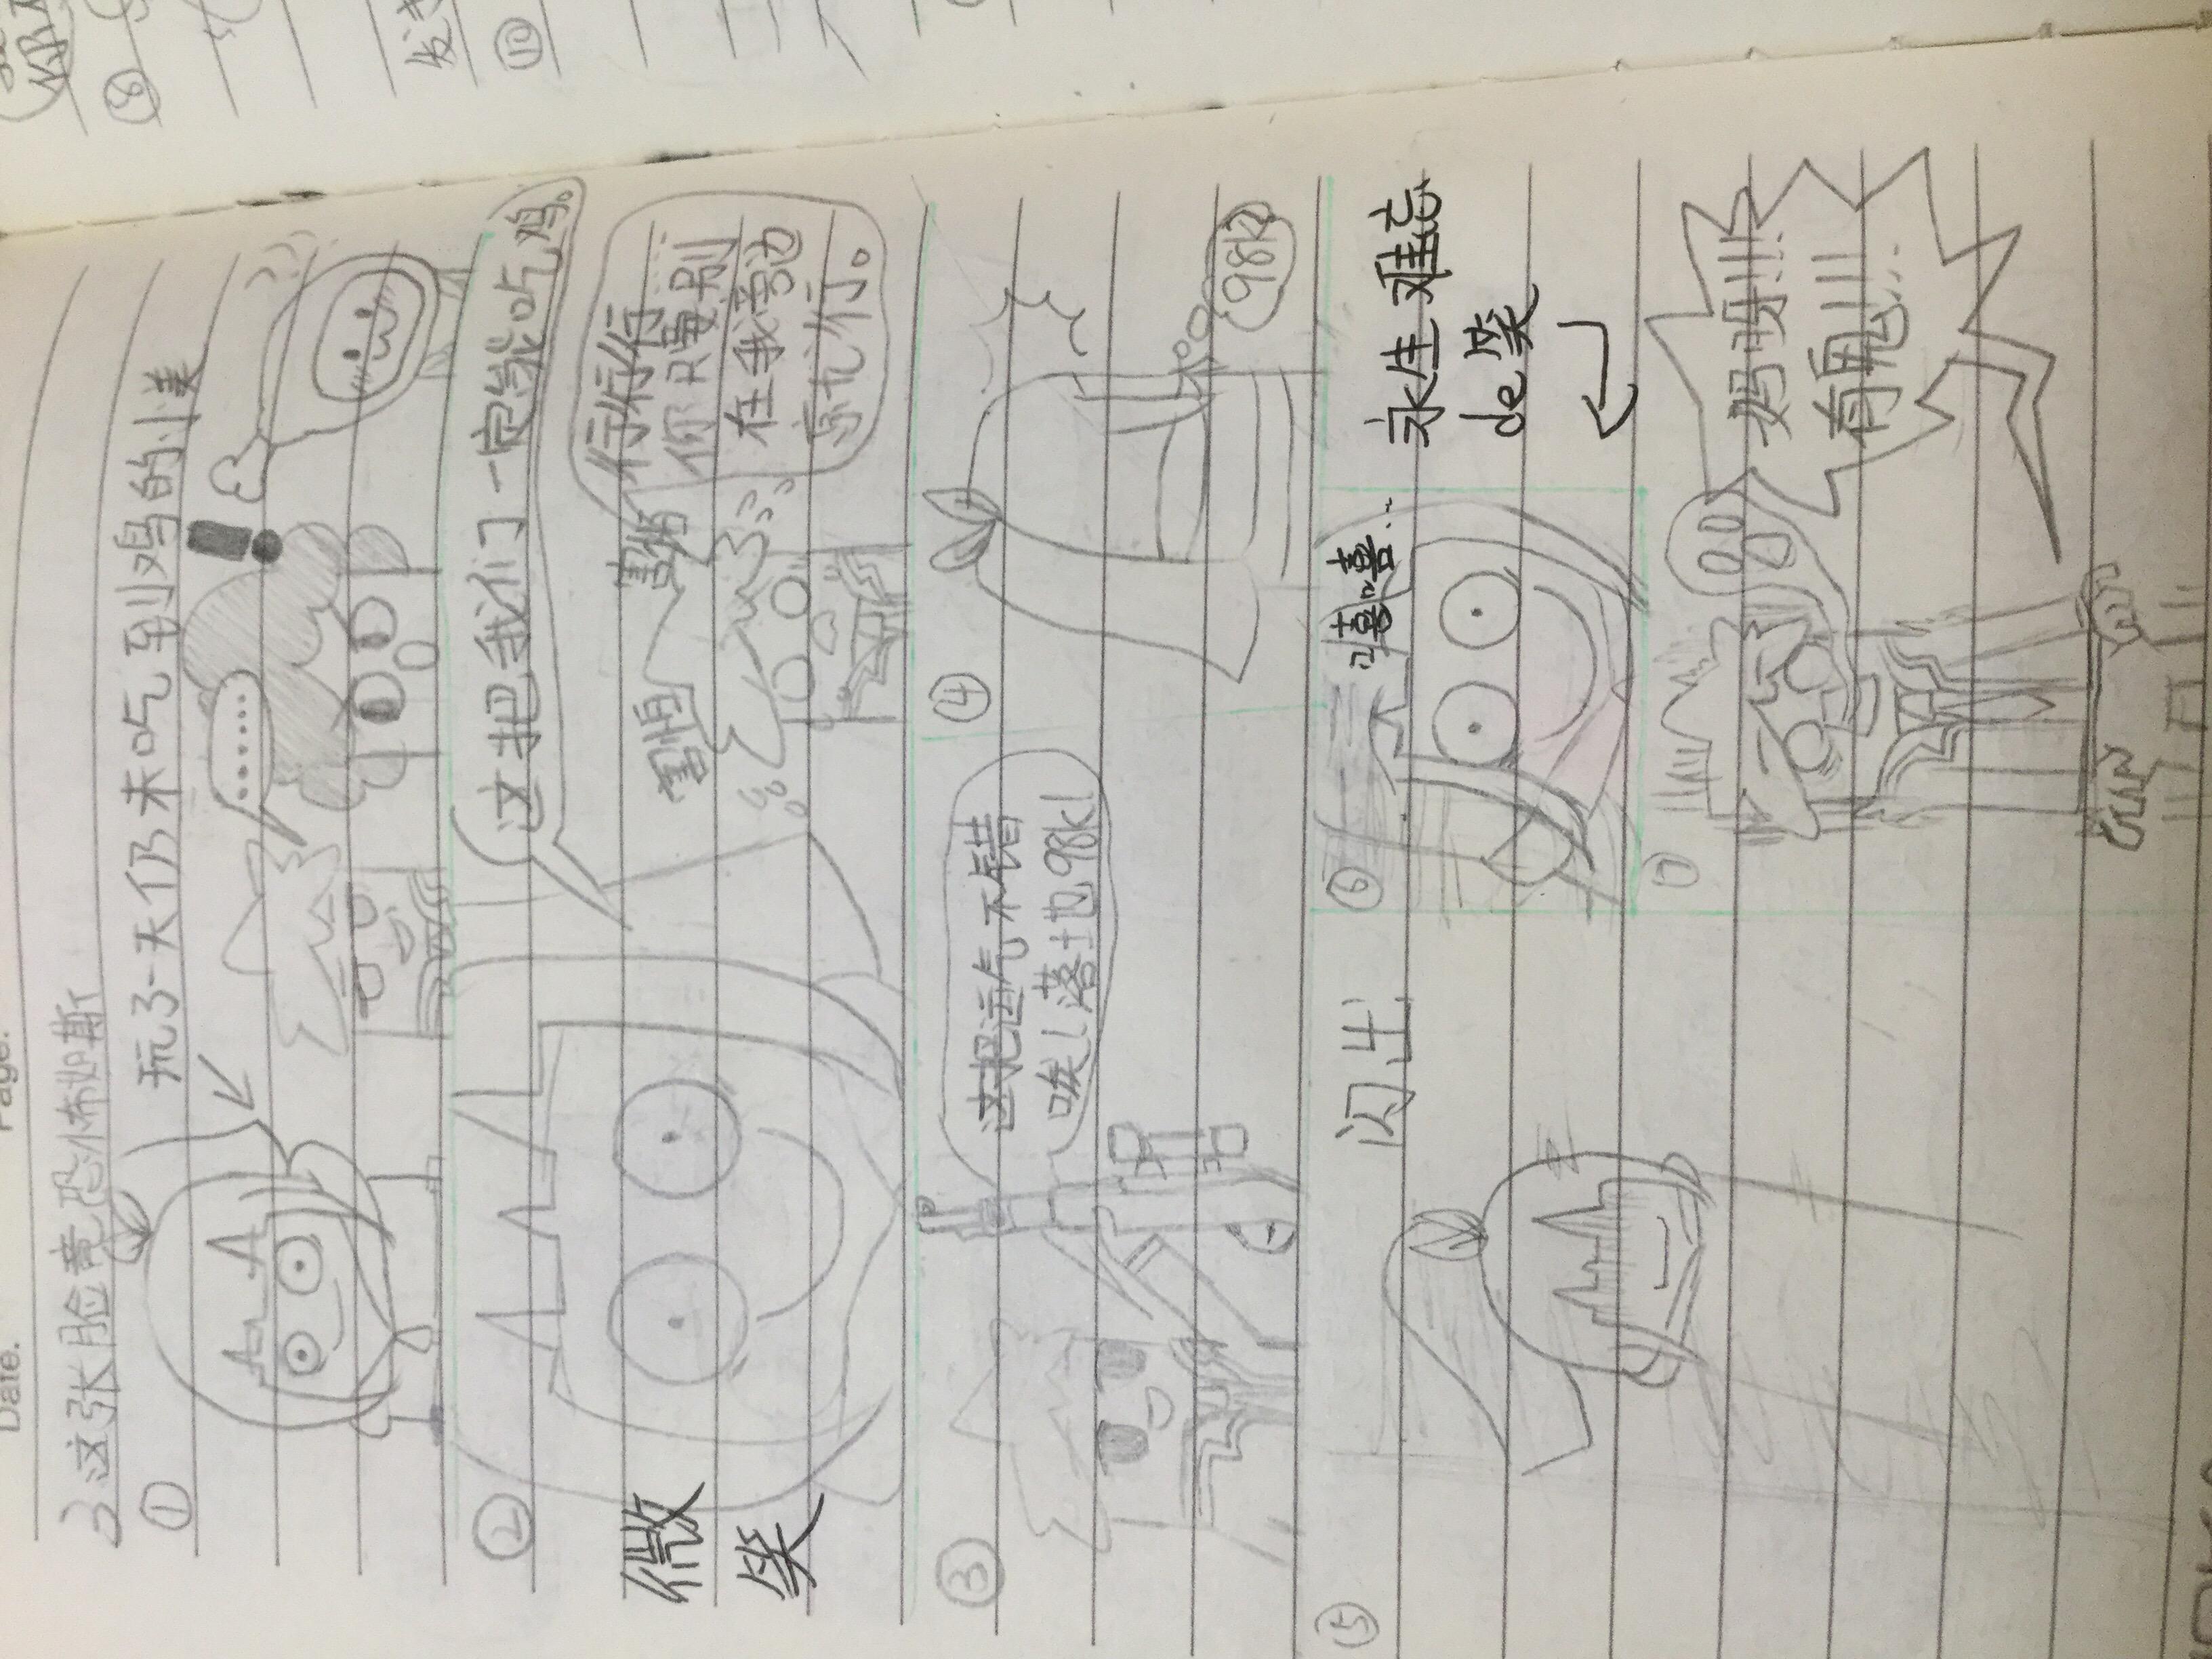 Date.
Page.
3 这张脸竟恐怖如斯
①
玩了3天仍未吃到鸡的小美
......
!
②
这把我们一定能吃鸡。
微笑
害怕
害怕
行行行
你只要别
在我旁边
就行。
③
这把运气不错
唉！落地98k！
④
98k
⑤
闪出
⑥
嘻嘻...
永生难忘
de笑
⑦
妈呀!!!
有鬼!!!
⑧
⑩